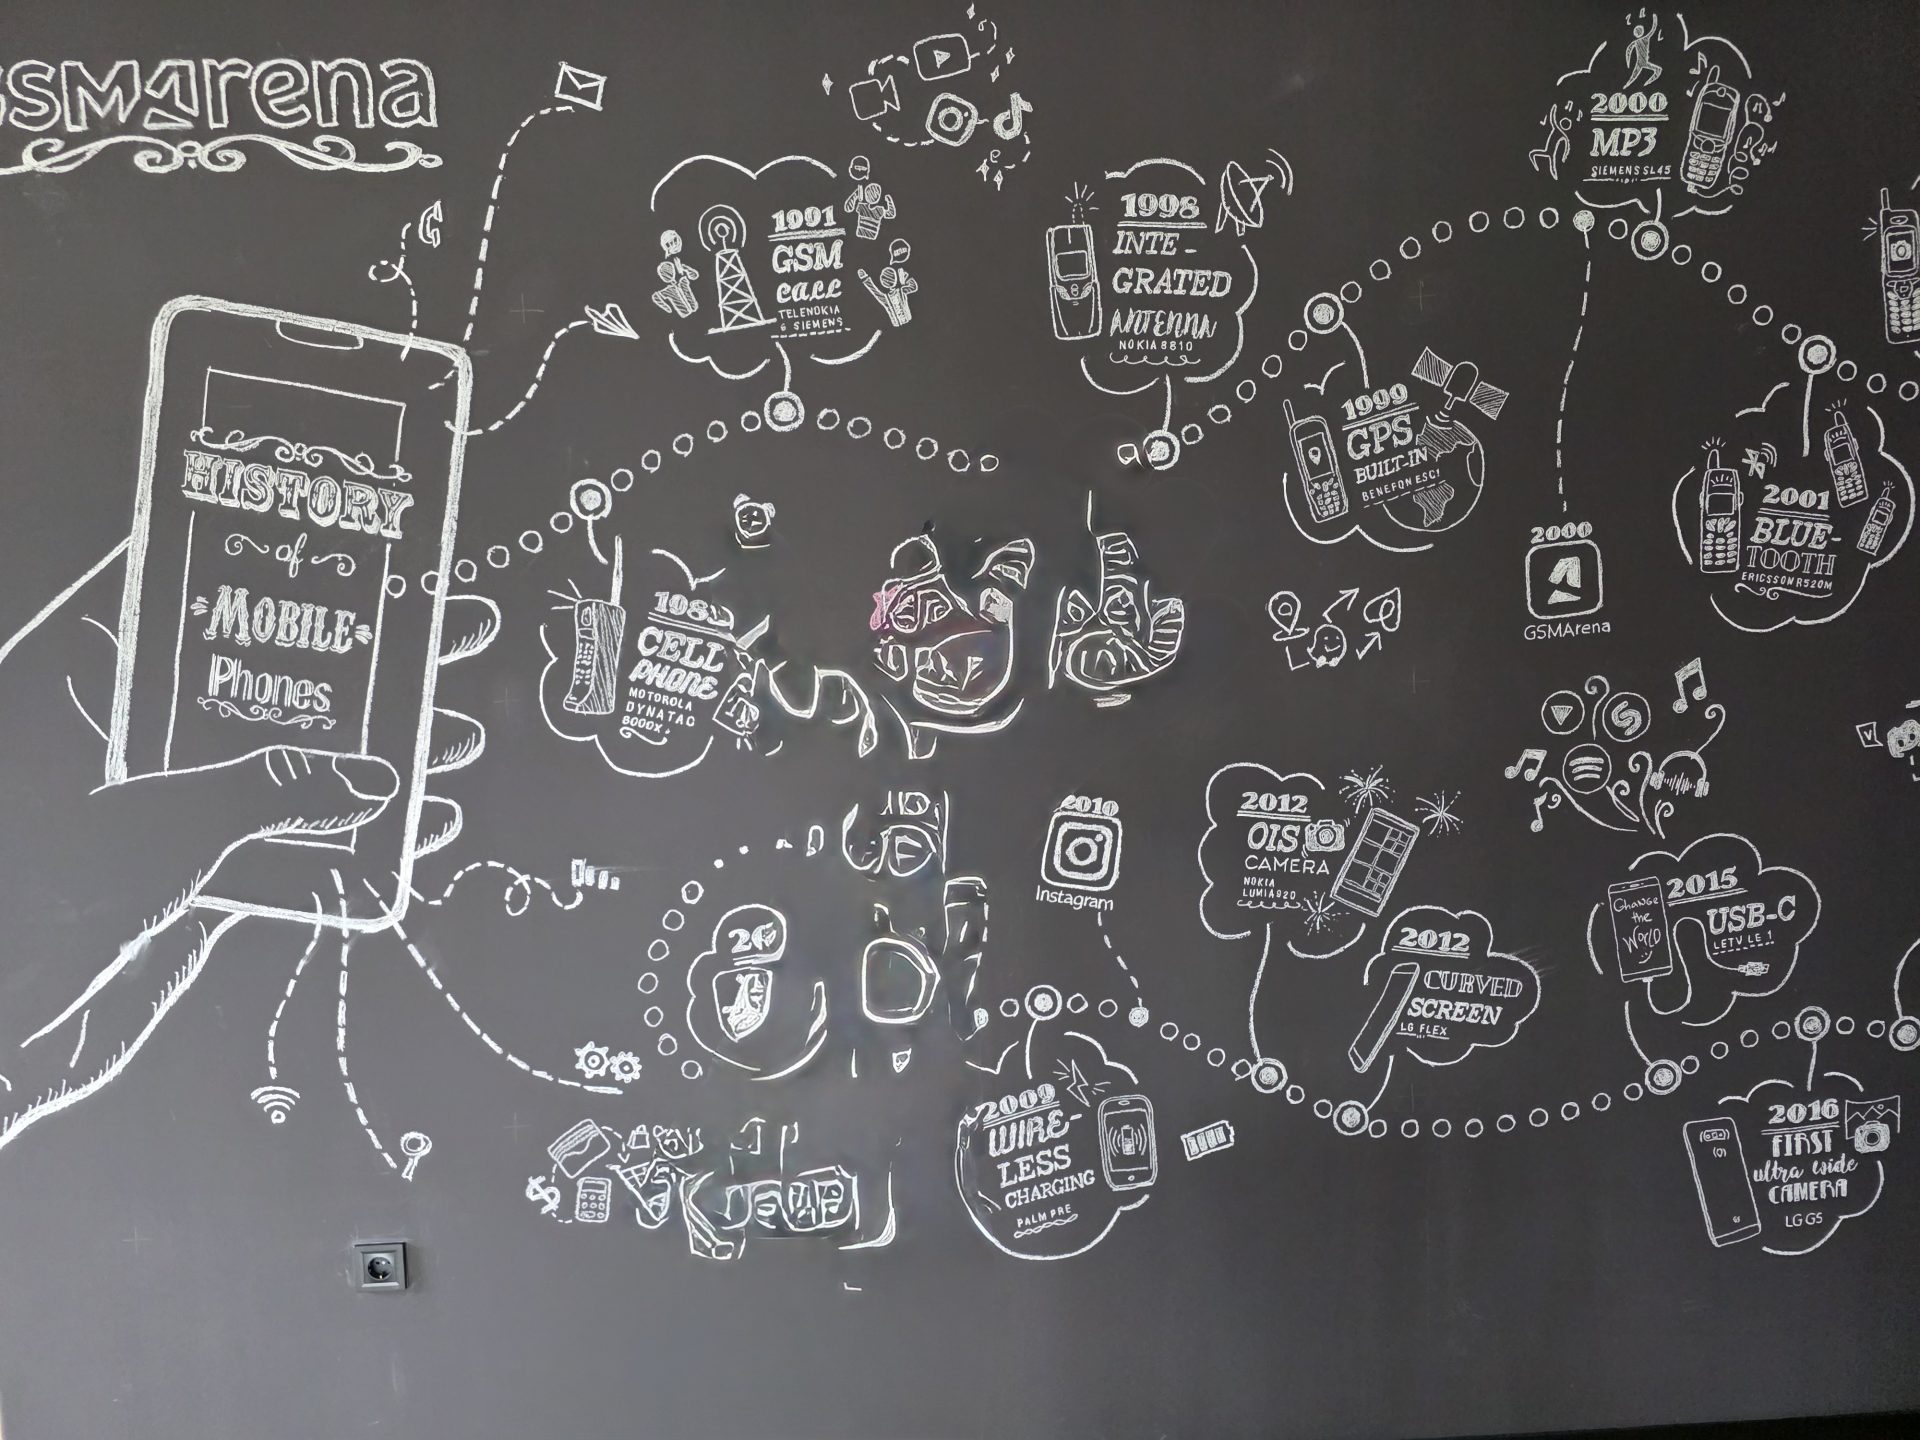 GSMArena
HISTORY
of
MOBILE
Phones
1991
GSM
CALL
TELENOKIA
& SIEMENS
1998
INTE-
GRATED
ANTENNA
NOKIA 8810
2000
MP3
SIEMENS SL45
1999
GPS
BUILT-IN
BENEFON ESC!
2000
GSMArena
2001
BLUE-
TOOTH
ERICSSON R520M
CELL
PHONE
MOTOROLA
DYNATAC
8000X
2010
Instagram
2012
OIS
CAMERA
NOKIA
LUMIA 920
2012
CURVED
SCREEN
LG FLEX
Change
the
World
2015
USB-C
LETV LE 1
2009
WIRE-
LESS
CHARGING
PALM PRE
2016
FIRST
ultra wide
CAMERA
LG G5